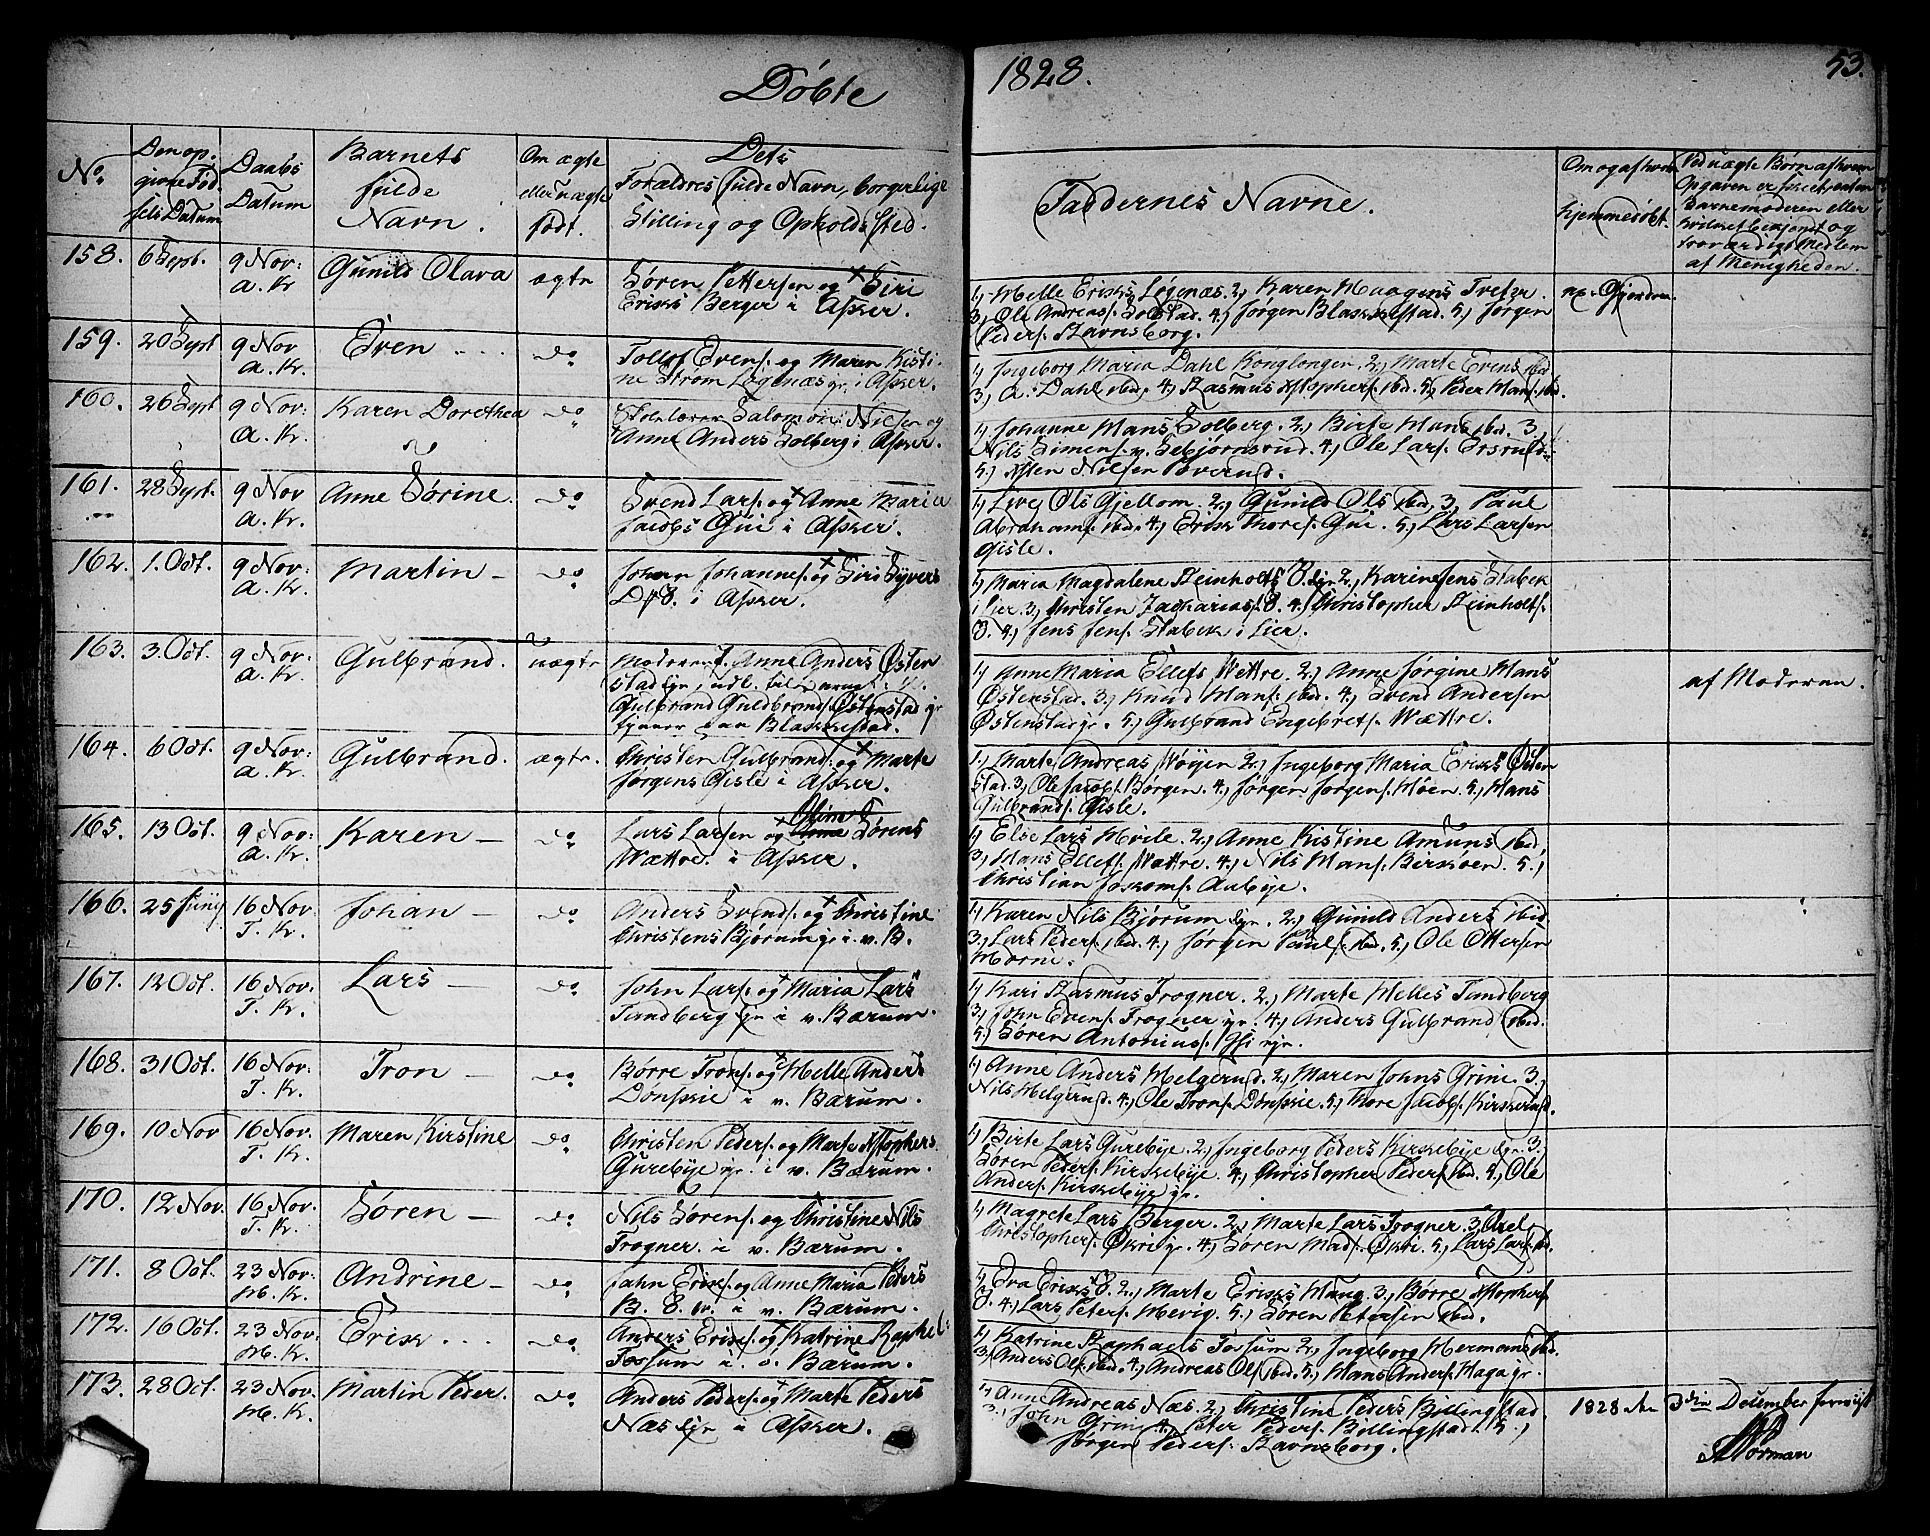 Døbte
1828.
53.
No.
Den op-
givne Fød-
sels Datum
Daabs
Datum
Barnets
fulde
Navn.
Om ægte
eller uægte
født.
Dets
Forældres fulde Navn, borgerlige
Stilling og Opholds Sted.
Faddernes Navne.
Om og af hvem
hjemmedøbt.
Ved uægte Børn af hvem
Opgaven er
Barnemoderen eller
hvilket bekjendt og
troværdigt Medlem
af Menigheden.
158. 6 Sept. 9 Nov: Gunild Olava ægte Søren Pettersen og Siri
A. Kr Eriks Berger i Asker.
1, Helle Eriks Løgenæs. 2, Karen Haagens
3, Ole Andreas: Solstad. 4, Jørgen Blakkestad. 5, Jørgen
Peders. Ravnsborg.
159. 20 Sept 9 Nov Even do Tollof Evens. og Maren Kisti-
A. Kr. ne Strøm Løgenæs gr. i Asker.
1, Ingeborg Maria Dahl Konglongen. 2, Marte Evens ibd
3, A. Dahl ibd. 4, Rasmus Xstophers. ibd. 5, Peder Hans. ibd.
160. 26 Sept 9 Nov: Karen Dorothea do Skolelærer Salomon Nielsen og
A. Kr. Anne Anders Solberg i Asker.
1, Johanne Hans Solberg. 2, Birte Hans ibd. 3,
Nils Simens. v. Sebjørnsrud. 4, Ole Lars.
5, Xsten Nilsen
161. 28 Sept. 9 Nov Anne Sørine. do Svend Lars. og Anne Maria
A. Kr. Jacobs Gui i Asker.
1, Live Ols Gjellom. 2, Gunild Ols ibd. 3, Paul
Abrahams. ibd. 4, Erik Thores. Gui. 5, Lars Larsen
Gisle.
162. 1. Oct. 9 Nov: Martin do Johan Johannes. og Siri Syvers
A. Kr. i Asker.
1, Maria Magdalene Reinholts 2, Karine Jens Stabek
i Lier. 3, Christen Zacharias. 4, Christopher Reinholts.
4, Jens Jens. Stabek i Lier.
163. 3. Oct. 9 Nov: Gulbrand. uægte Anne Anders Østen
A. Kr. stad
Gulbrand Guldbrands. Østenstad gr
tjener paa Blakkestad.
1, Anne Maria Ellefs Wettre. 2, Anne Jørgine Hans
Østenstad. 3, Knud Hans. ibd. 4, Svend Andersen
Østenstad gr. 5, Gulbrand Engebrets. Wættre.
af Moderen.
164. 6 Oct. 9 Nov: Gulbrand. ægte. Christen Gulbrands. og Marte
A. Kr. Jørgens Gisle i Asker.
1, Marte Andreas Nøyen 2, Ingeborg Maria Eriks Østen
stad. 3, Ole Jacobs. Børgen. 4, Jørgen Jørgens. Moen 5, Hans
Gulbrands. Gisle.
165. 13 Oct. 9 Nov: Karen do Lars Larsen og Sørens
A. Kr. Wættre. i Asker.
1, Else Lars Hvile. 2, Anne Kistine Amunds ibd.
3, Hans Ellefs. Wættre. 4, Nils Hans. Berskoen. 5,
Christian
166. 25 Junij 16 Nov. Johan do Anders Svends. og Christine
T. Kr. Christens Bjørum gr. i. v. B.
1, Karen Nils Bjørum 2, Gunild Anders ibid.
3, Lars Peders. ibd. 4, Jørgen Pauls. ibd. 5, Ole Ottersen
Horni.
167. 12 Oct. 16 Nov. Lars do John Lars. og Maria Lars
T. Kr. Tandberg gr i v. Bærum.
1, Kari Rasmus Trogner. 2, Marte Helles Tandberg
3, John Evens. Trogner gr. 4, Anders Gulbrand ibd.
5, Søren Antonius.
168. 31 Oct. 16 Nov: Tron do Børre Trons. og Helle Anders
T. Kr. Dønskie i v. Bærum.
1, Anne Anders Helgerud. 2, Maren Johns Grini. 3,
Nils Helgerud. 4, Ole Trons. Dønskie. 5, Thore Jacobs. Kirkerud.
169. 10 Nov 16 Nov. Maren Kirstine do Christen Peders. og Marte Xstophers
T. Kr. Gurebye gr. i v. Bærum.
1, Birte Lars Gurebye. 2, Ingeborg Peders Kirkebye 3,
Søren Peders. Kirkebye. 4, Christopher Peders. ibd. 5, Ole
Anders. Kirkebye gr.
170. 12 Nov. 16 Nov. Søren do Nils Sørens. og Christine Nils
T. Kr. Trogner i v. Bærum.
1, Magrete Lars Berger. 2, Marte Lars Trogner. 3, Axel
Christophers. Økri gr. 4, Søren Mads. Økri. 5, Lars Lars. ibd.
171. 8 Oct. 23 Nov: Andrine do John Eriks. og Anne Maria Peders
H. Kr. i v. Bærum.
1, Eva Eriks 2, Marte Eriks Haug. 3, Børre Xstophers.
4, Lars Peters. Hevig. 5, Søren Petersen ibd.
172. 16 Oct. 23 Nov: Erik do Anders Eriks. og Katrine Raphel:
H. Kr. Fossum i. v. Bærum.
1, Katrine Raphaels Fossum 2, Ingeborg Hermans ibd.
3, Anders Ols. ibd. 4, Andreas Ols. ibd. 5, Hans Anders. Haga gr.
173. 28 Oct. 23 Nov. Martin Peder. do Anders Peders. og Marte Peders
H. Kr. Næs i Asker.
1, Anne Andreas Næs. 2, Christine Peders Billingstad.
3, John Grini 4, Peter Peders. Billingstad. 5,
Jørgen Peders. Ravnsborg.
1828 den 3die December